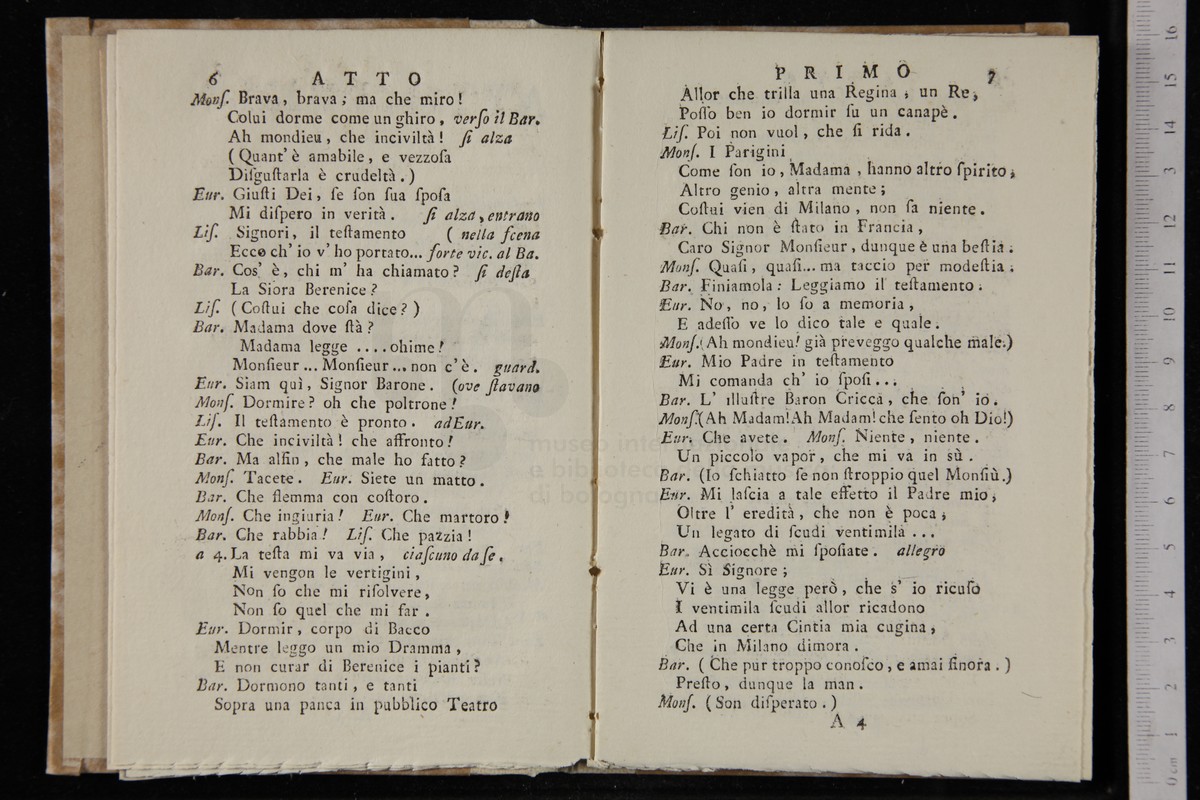 6 ATTO
Monſ. Brava, brava; ma che miro!
Colui dorme come un ghiro, verſo il Bar.
Ah mondieu, che inciviltà! ſi alza
(Quant' è amabile, e vezzoſa
Diſguſtarla è crudeltà.)
Eur. Giuſti Dei, ſe ſon ſua ſpoſa
Mi diſpero in verità. ſi alza, entrano
Liſ. Signori, il teſtamento ( nella ſcena
Ecco ch' io v' ho portato... forte vic. al Ba.
Bar. Cos' è, chi m' ha chiamato? ſi deſta
La Siora Berenice?
Liſ. (Coſtui che coſa dice?)
Bar. Madama dove ſtà?
Madama legge ....ohime!
Monſieur ... Monſieur ... non c' è. guard.
Eur. Siam quì, Signor Barone. (ove ſtavano
Monſ. Dormire? oh che poltrone!
Liſ. Il teſtamento è pronto. ad Eur.
Eur. Che inciviltà! che affronto!
Bar. Ma alfin, che male ho fatto?
Monſ. Tacete. Eur. Siete un matto.
Bar. Che flemma con coſtoro.
Monſ. Che ingiuria! Eur. Che martoro!
Bar. Che rabbia! Liſ. Che pazzia!
a 4. La teſta mi va via, ciaſcuno da ſe.
Mi vengon le vertigini,
Non ſo che mi riſolvere,
Non ſo quel che mi far.
Eur. Dormir, corpo di Bacco
Mentre leggo un mio Dramma,
E non curar di Berenice i pianti?
Bar. Dormono tanti, e tanti
Sopra una panca in pubblico Teatro
PRIMO 7
Allor che trilla una Regina, un Re,
Poſſo ben io dormir ſu un canapè.
Liſ. Poi non vuol, che ſi rida.
Monſ. I Parigini
Come ſon io, Madama, hanno altro ſpirito,
Altro genio, altra mente;
Coſtui vien di Milano, non ſa niente.
Bar. Chi non è ſtato in Francia,
Caro Signor Monſieur, dunque è una beſtia.
Monſ. Quaſi, quaſi... ma taccio per modeſtia.
Bar. Finiamola: Leggiamo il teſtamento.
Eur. No, no, lo ſo a memoria,
E adeſſo ve lo dico tale e quale.
Monſ. (Ah mondieu! già preveggo qualche male.)
Eur. Mio Padre in teſtamento
Mi comanda ch' io ſpoſi...
Bar. L' illuſtre Baron Cricca, che ſon' io.
Monſ. (Ah Madam! Ah Madam! che ſento oh Dio!)
Eur. Che avete. Monſ. Niente, niente.
Un piccolo vapor, che mi va in sù.
Bar. (Io ſchiatto ſe non ſtroppio quel Monſiù.)
Eur. Mi laſcia a tale effetto il Padre mio,
Oltre l' eredità, che non è poca,
Un legato di ſcudi ventimila ...
Bar. Acciocchè mi ſpoſiate. allegro
Eur. Sì Signore;
Vi è una legge però, che s' io ricuſo
I ventimila ſcudi allor ricadono
Ad una certa Cintia mia cugina,
Che in Milano dimora.
Bar. (Che pur troppo conoſco, e amai finora.)
Preſto, dunque la man.
Monſ. (Son diſperato.)
A 4